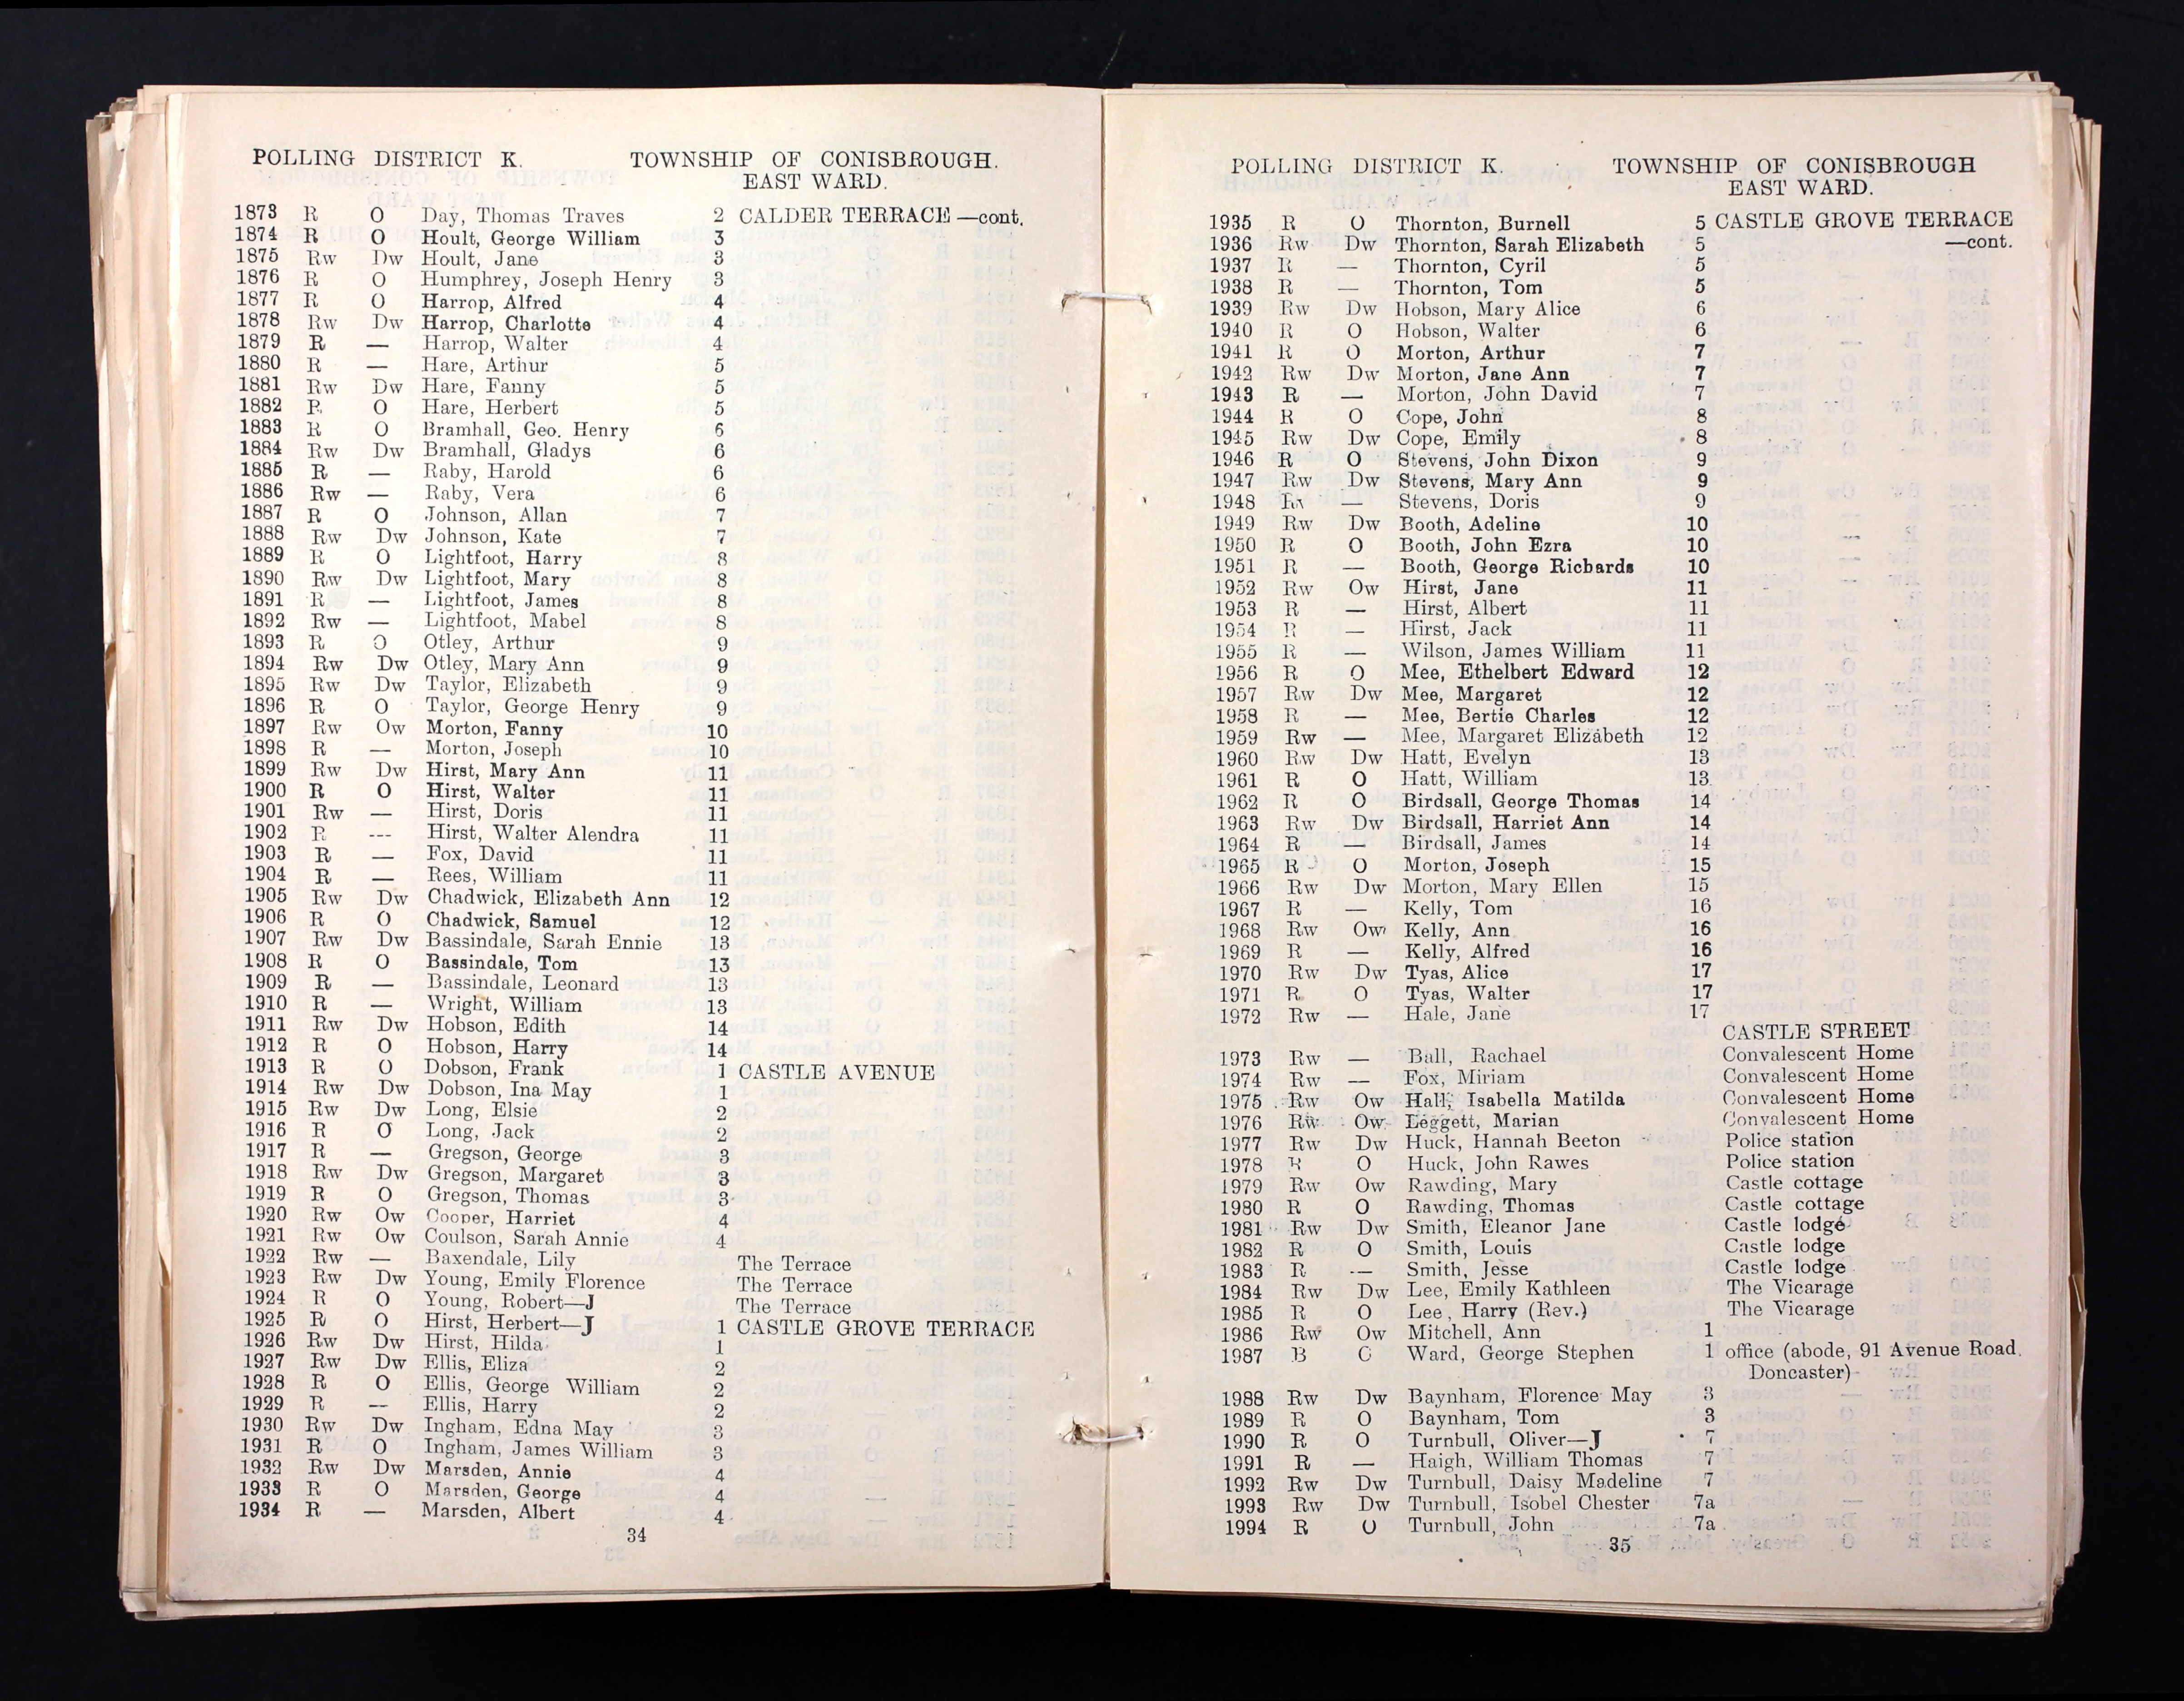 POLLING DISTRICT K. TOWNSHIP OF CONISBROUGH.
EAST WARD.
1873 R O Day, Thomas Traves 2 CALDER TERRACE —cont.
1874 R O Hoult, George William 3
1875 Rw Dw Hoult, Jane 3
1876 R O Humphrey, Joseph Henry 3
1877 R O Harrop, Alfred 4
1878 Rw Dw Harrop, Charlotte 4
1879 R — Harrop, Walter 4
1880 R — Hare, Arthur 5
1881 Rw Dw Hare, Fanny 5
1882 R O Hare, Herbert 5
1883 R O Bramhall, Geo. Henry 6
1884 Rw Dw Bramhall, Gladys 6
1885 R — Raby, Harold 6
1886 Rw — Raby, Vera 6
1887 R O Johnson, Allan 7
1888 Rw Dw Johnson, Kate 7
1889 R O Lightfoot, Harry 8
1890 Rw Dw Lightfoot, Mary 8
1891 R — Lightfoot, James 8
1892 Rw — Lightfoot, Mabel 8
1893 R O Otley, Arthur 9
1894 Rw Dw Otley, Mary Ann 9
1895 Rw Dw Taylor, Elizabeth 9
1896 R O Taylor, George Henry 9
1897 Rw Ow Morton, Fanny 10
1898 R — Morton, Joseph 10
1899 Rw Dw Hirst, Mary Ann 11
1900 R O Hirst, Walter 11
1901 Rw — Hirst, Doris 11
1902 R --- Hirst, Walter Alendra 11
1903 R — Fox, David 11
1904 R — Rees, William 11
1905 Rw Dw Chadwick, Elizabeth Ann 12
1906 R O Chadwick, Samuel 12
1907 Rw Dw Bassindale, Sarah Ennie 13
1908 R O Bassindale, Tom 13
1909 R — Bassindale, Leonard 13
1910 R — Wright, William 13
1911 Rw Dw Hobson, Edith 14
1912 R O Hobson, Harry 14
1913 R O Dobson, Frank 1 CASTLE AVENUE
1914 Rw Dw Dobson, Ina May 1
1915 Rw Dw Long, Elsie 2
1916 R O Long, Jack 2
1917 R — Gregson, George 3
1918 Rw Dw Gregson, Margaret 3
1919 R O Gregson, Thomas 3
1920 Rw Ow Cooper, Harriet 4
1921 Rw Ow Coulson, Sarah Annie 4
1922 Rw — Baxendale, Lily The Terrace
1923 Rw Dw Young, Emily Florence The Terrace
1924 R O Young, Robert—J The Terrace
1925 R O Hirst, Herbert—J 1 CASTLE GROVE TERRACE
1926 Rw Dw Hirst, Hilda 1
1927 Rw Dw Ellis, Eliza 2
1928 R O Ellis, George William 2
1929 R -- Ellis, Harry 2
1930 Rw Dw Ingham, Edna May 3
1931 R O Ingham, James William 3
1932 Rw Dw Marsden, Annie 4
1933 R O Marsden, George 4
1934 R — Marsden, Albert 4
34
POLLING DISTRICT K. TOWNSHIP OF CONISBROUGH
EAST WARD.
1935 R O Thornton, Burnell 5 CASTLE GROVE TERRACE
1936 Rw Dw Thornton, Sarah Elizabeth 5 —cont.
1937 R — Thornton, Cyril 5
1938 R — Thornton, Tom 5
1939 Rw Dw Hobson, Mary Alice 6
1940 R O Hobson, Walter 6
1941 R O Morton, Arthur 7
1942 Rw Dw Morton, Jane Ann 7
1943 R — Morton, John David 7
1944 R O Cope, John 8
1945 Rw Dw Cope, Emily 8
1946 R O Stevens, John Dixon 9
1947 Rw Dw Stevens, Mary Ann 9
1948 Rw — Stevens, Doris 9
1949 Rw Dw Booth, Adeline 10
1950 R O Booth, John Ezra 10
1951 R — Booth, George Richards 10
1952 Rw Ow Hirst, Jane 11
1953 R — Hirst, Albert 11
1954 R — Hirst, Jack 11
1955 R — Wilson, James William 11
1956 R O Mee, Ethelbert Edward 12
1957 Rw Dw Mee, Margaret 12
1958 R — Mee, Bertie Charles 12
1959 Rw — Mee, Margaret Elizabeth 12
1960 Rw Dw Hatt, Evelyn 13
1961 R O Hatt, William 13
1962 R O Birdsall, George Thomas 14
1963 Rw Dw Birdsall, Harriet Ann 14
1964 R — Birdsall, James 14
1965 R O Morton, Joseph 15
1966 Rw Dw Morton, Mary Ellen 15
1967 R — Kelly, Tom 16
1968 Rw Ow Kelly, Ann 16
1969 R — Kelly, Alfred 16
1970 Rw Dw Tyas, Alice 17
1971 R O Tyas, Walter 17
1972 Rw — Hale, Jane 17
CASTLE STREET
1973 Rw — Ball, Rachael Convalescent Home
1974 Rw — Fox, Miriam Convalescent Home
1975 Rw Ow Hall, Isabella Matilda Convalescent Home
1976 Rw Ow Leggett, Marian Convalescent Home
1977 Rw Dw Huck, Hannah Beeton Police station
1978 R O Huck, John Rawes Police station
1979 Rw Ow Rawding, Mary Castle cottage
1980 R O Rawding, Thomas Castle cottage
1981 Rw Dw Smith, Eleanor Jane Castle lodge
1982 R O Smith, Louis Castle lodge
1983 R -— Smith, Jesse Castle lodge
1984 Rw Dw Lee, Emily Kathleen The Vicarage
1985 R O Lee, Harry (Rev.) The Vicarage
1986 Rw Ow Mitchell, Ann 1
1987 B O Ward, George Stephen 1 office (abode, 91 Avenue Road,
Doncaster)
1988 Rw Dw Baynham, Florence May 3
1989 R O Baynham, Tom 3
1990 R O Turnbull, Oliver—J 7
1991 R — Haigh, William Thomas 7
1992 Rw Dw Turnbull, Daisy Madeline 7
1993 Rw Dw Turnbull, Isobel Chester 7a
1994 R O Turnbull, John 7a
35